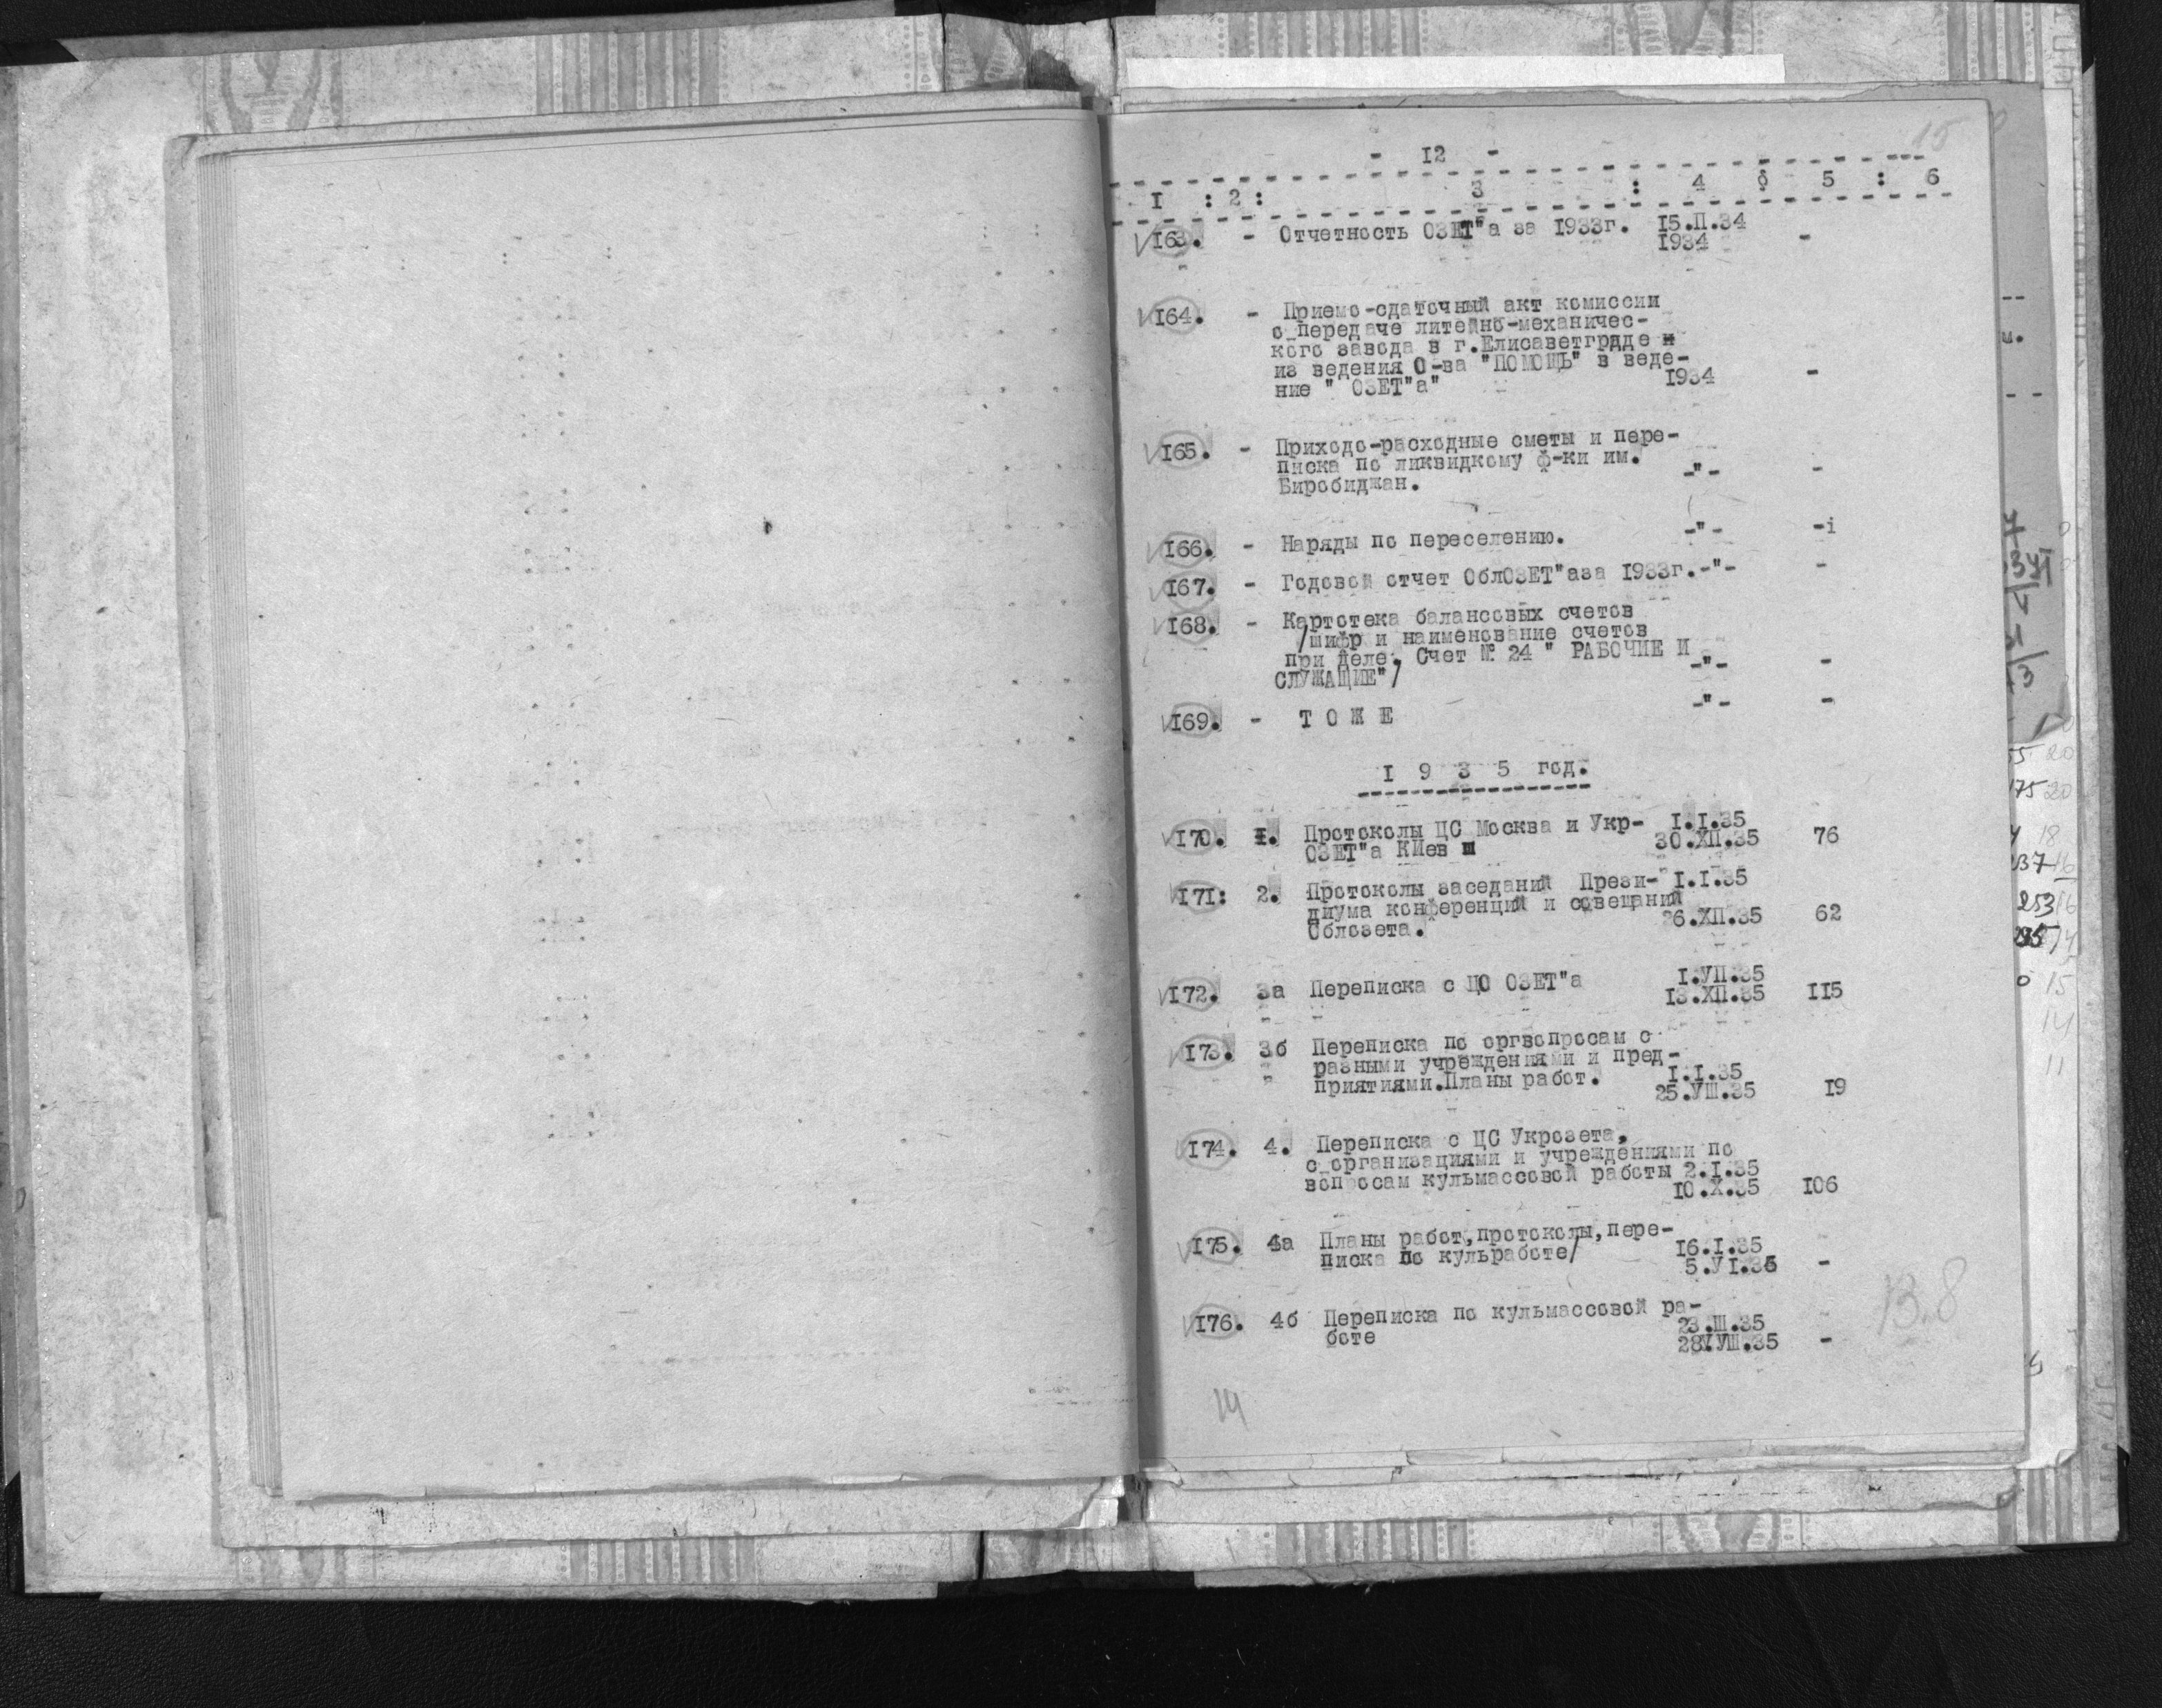 15
- 12 -
I : 2 : 3 : 4 : 5 : 6
163. - Отчетность ОЗЕТ"а за 1933г. 15.П.34
1934 -
164. - Приемо-сдаточный акт комиссии
о передаче литейно-механичес-
кого завода в г.Елисаветграде и
из ведения О-ва "ПОМОЩЬ" в веде-
ние " ОЗЕТ"а" 1934 -
165. - Приходо-расходные сметы и пере-
писка по ликвидкому ф-ки им. -"- -
Биробиджан.
166. - Наряды по переселению. -"- -i
167. - Годовой отчет ОблОЗЕТ"аза 1933г.-"- -
168. - Картотека балансовых счетов
/шифр и наименование счетов
при деле. Счет № 24 " РАБОЧИЕ И
СЛУЖАЩИЕ"/ -"- -
169. - Т О Ж Е -"- -
I 9 3 5 год.
170. I. Протоколы ЦС Москва и Укр- I.I.35
ОЗЕТ"а КИев 30.ХП.35 76
171: 2. Протоколы заседаний Прези- I.I.35
диума конференций и совещаний
Облозета. 26.ХП.35 62
172. 3а Переписка с ЦО ОЗЕТ"а I.УП.35
13.ХП.35 115
173. 3б Переписка по оргвопросам с
разными учреждениями и пред-
приятиями.Планы работ. I.I.35
25.УШ.35 19
174. 4. Переписка с ЦС Укрозета,
с организациями и учреждениями по
вопросам кульмассовой работы 2.I.35
10.Х.35 106
175. 4а Планы работ,протоколы,пере-
писка по кульработе/ 16.I.35
5.УI.35 -
176. 4б Переписка по кульмассовой ра-
боте 23.Ш.35
28.УШ.35 -
13.8
14